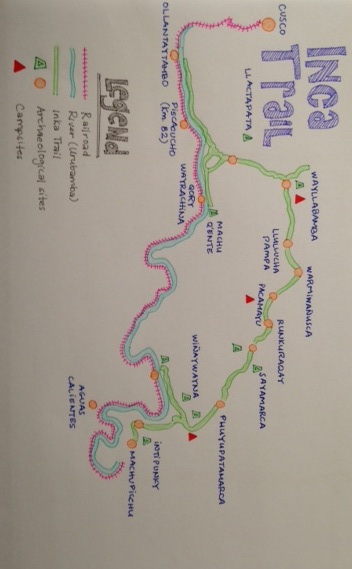 Inca
Trail
CUSCO
OLLANTAYTAMBO
PISCACUCHO
(km. 82)
LLACTAPATA
QORY
WAYRACHINA
MACHU
Q'ENTE
WAYLLABAMBA
LLULLUCHA
PAMPA
WARMIWAÑUSCA
PACAMAYU
RUNKURAQAY
SAYAMARCA
PHUYUPATAMARCA
WIÑAYWAYNA
INTIPUNKU
MACHUPICCHU
AGUAS
CALIENTES
Legend
Railroad
River (Urubamba)
Inka Trail
Archaeological sites
Campsites